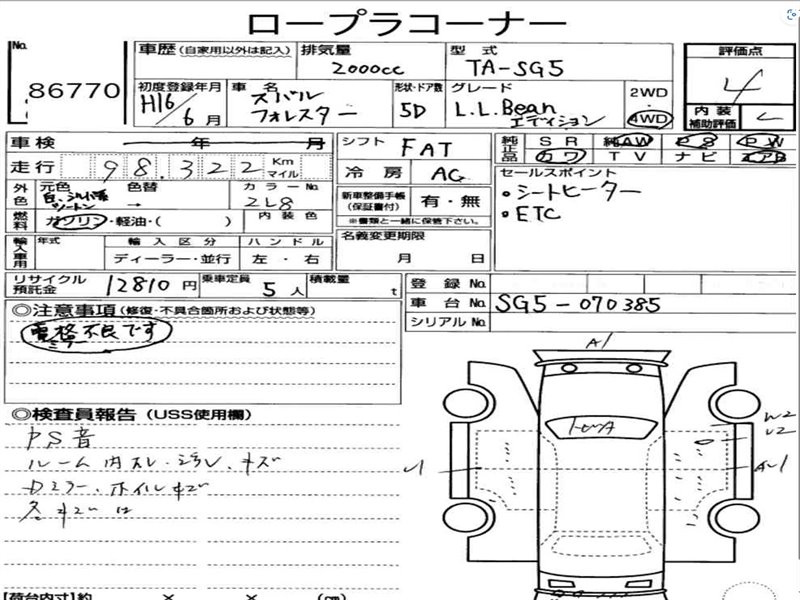 ロープラコーナー
No. 86770
車歴(自家用以外は記入) 排気量 2000cc 型式 TA-SG5 評価点 4
初度登録年月 H16/6月 車名 スバル フォレスター 形状・ドア数 5D グレード L.L.Bean エディション 2WD・4WD 内装補助評価 C
車検 年 月 シフト FAT 純正品 SR 純AW PS PW
カワ TV ナビ エアB
走行 98,322 Km マイル 冷房 AC セールスポイント
外色 元色 色替 → カラーNo. 2L8 新車整備手帳(保証書付) 有・無 •シートヒーター
※書類と一緒に保管下さい。 •ETC
燃料 ガソリン・軽油・( ) 内装色 名義変更期限
輸入車用 年式 輸入区分 ハンドル
ディーラー・並行 左・右 月 日
リサイクル預託金 12810円 乗車定員 5人 積載量 t 登録No.
車台No. SG5-070385
シリアルNo.
◎注意事項(修復・不具合箇所および状態等)
ミラー
不良です
◎検査員報告(USS使用欄)
PS音
ルーム内スレ・汚レ・キズ
Dミラー・ホイルキズ
各キズ
A1
W2
U2
U1
AU1
【荷台内寸】約 × × (cm)